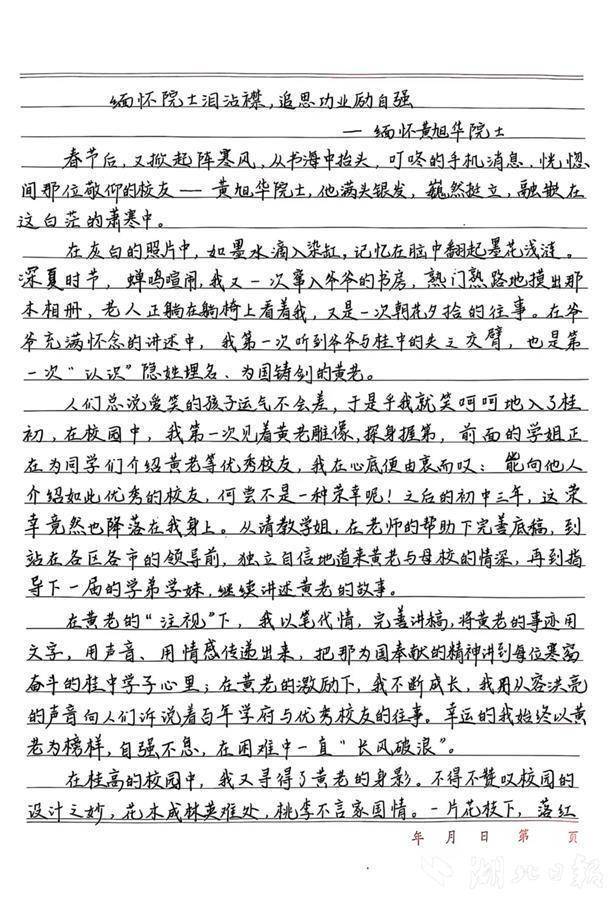 缅怀院士泪沾襟，追思功业励自强
— 缅怀黄旭华院士
春节后，又掀起阵寒风，从书海中抬头，叮咚的手机消息，恍惚
间那位敬仰的校友——黄旭华院士，他满头银发，巍然挺立，融散在
这白茫的萧寒中。
在灰白的照片中，如墨水滴入染缸，记忆在脑中翻起墨花浅涟。
深夏时节，蝉鸣喧闹，我又一次窜入爷爷的书房，熟门熟路地摸出那
本相册，老人正躺在躺椅上看着我，又是一次朝花夕拾的往事。在爷
爷充满怀念的讲述中，我第一次听到爷爷与桂中的失之交臂，也是第
一次“认识”隐姓埋名、为国铸剑的黄老。
人们总说爱笑的孩子运气不会差，于是乎我就笑呵呵地入了桂
初，在校园中，我第一次见着黄老雕像，探身握第，前面的学姐正
在为同学们介绍黄老等优秀校友，我在心底便由衷而叹：能向他人
介绍如此优秀的校友，何尝不是一种荣幸呢！之后的初中三年，这荣
幸竟然也降落在我身上。从请教学姐，在老师的帮助下完善底稿，到
站在各区各市的领导前，独立自信地道来黄老与母校的情深，再到指
导下一届的学弟学妹，继续讲述黄老的故事。
在黄老的“注视”下，我以笔代情，完善讲稿，将黄老的事迹用
文字，用声音、用情感传递出来，把那为国奉献的精神讲到每位寒窗
奋斗的桂中学子心里；在黄老的激励下，我不断成长，我用从容洪亮
的声音向人们诉说着百年学府与优秀校友的往事。幸运的我始终以黄
老为榜样，自强不息，在困难中一直“长风破浪”。
在桂高的校园中，我又寻得了黄老的身影。不得不赞叹校园的
设计之妙，花木成林英难处，桃李不言家国情。一片花枝下，落红
年 月 日 第 页
湖北日报